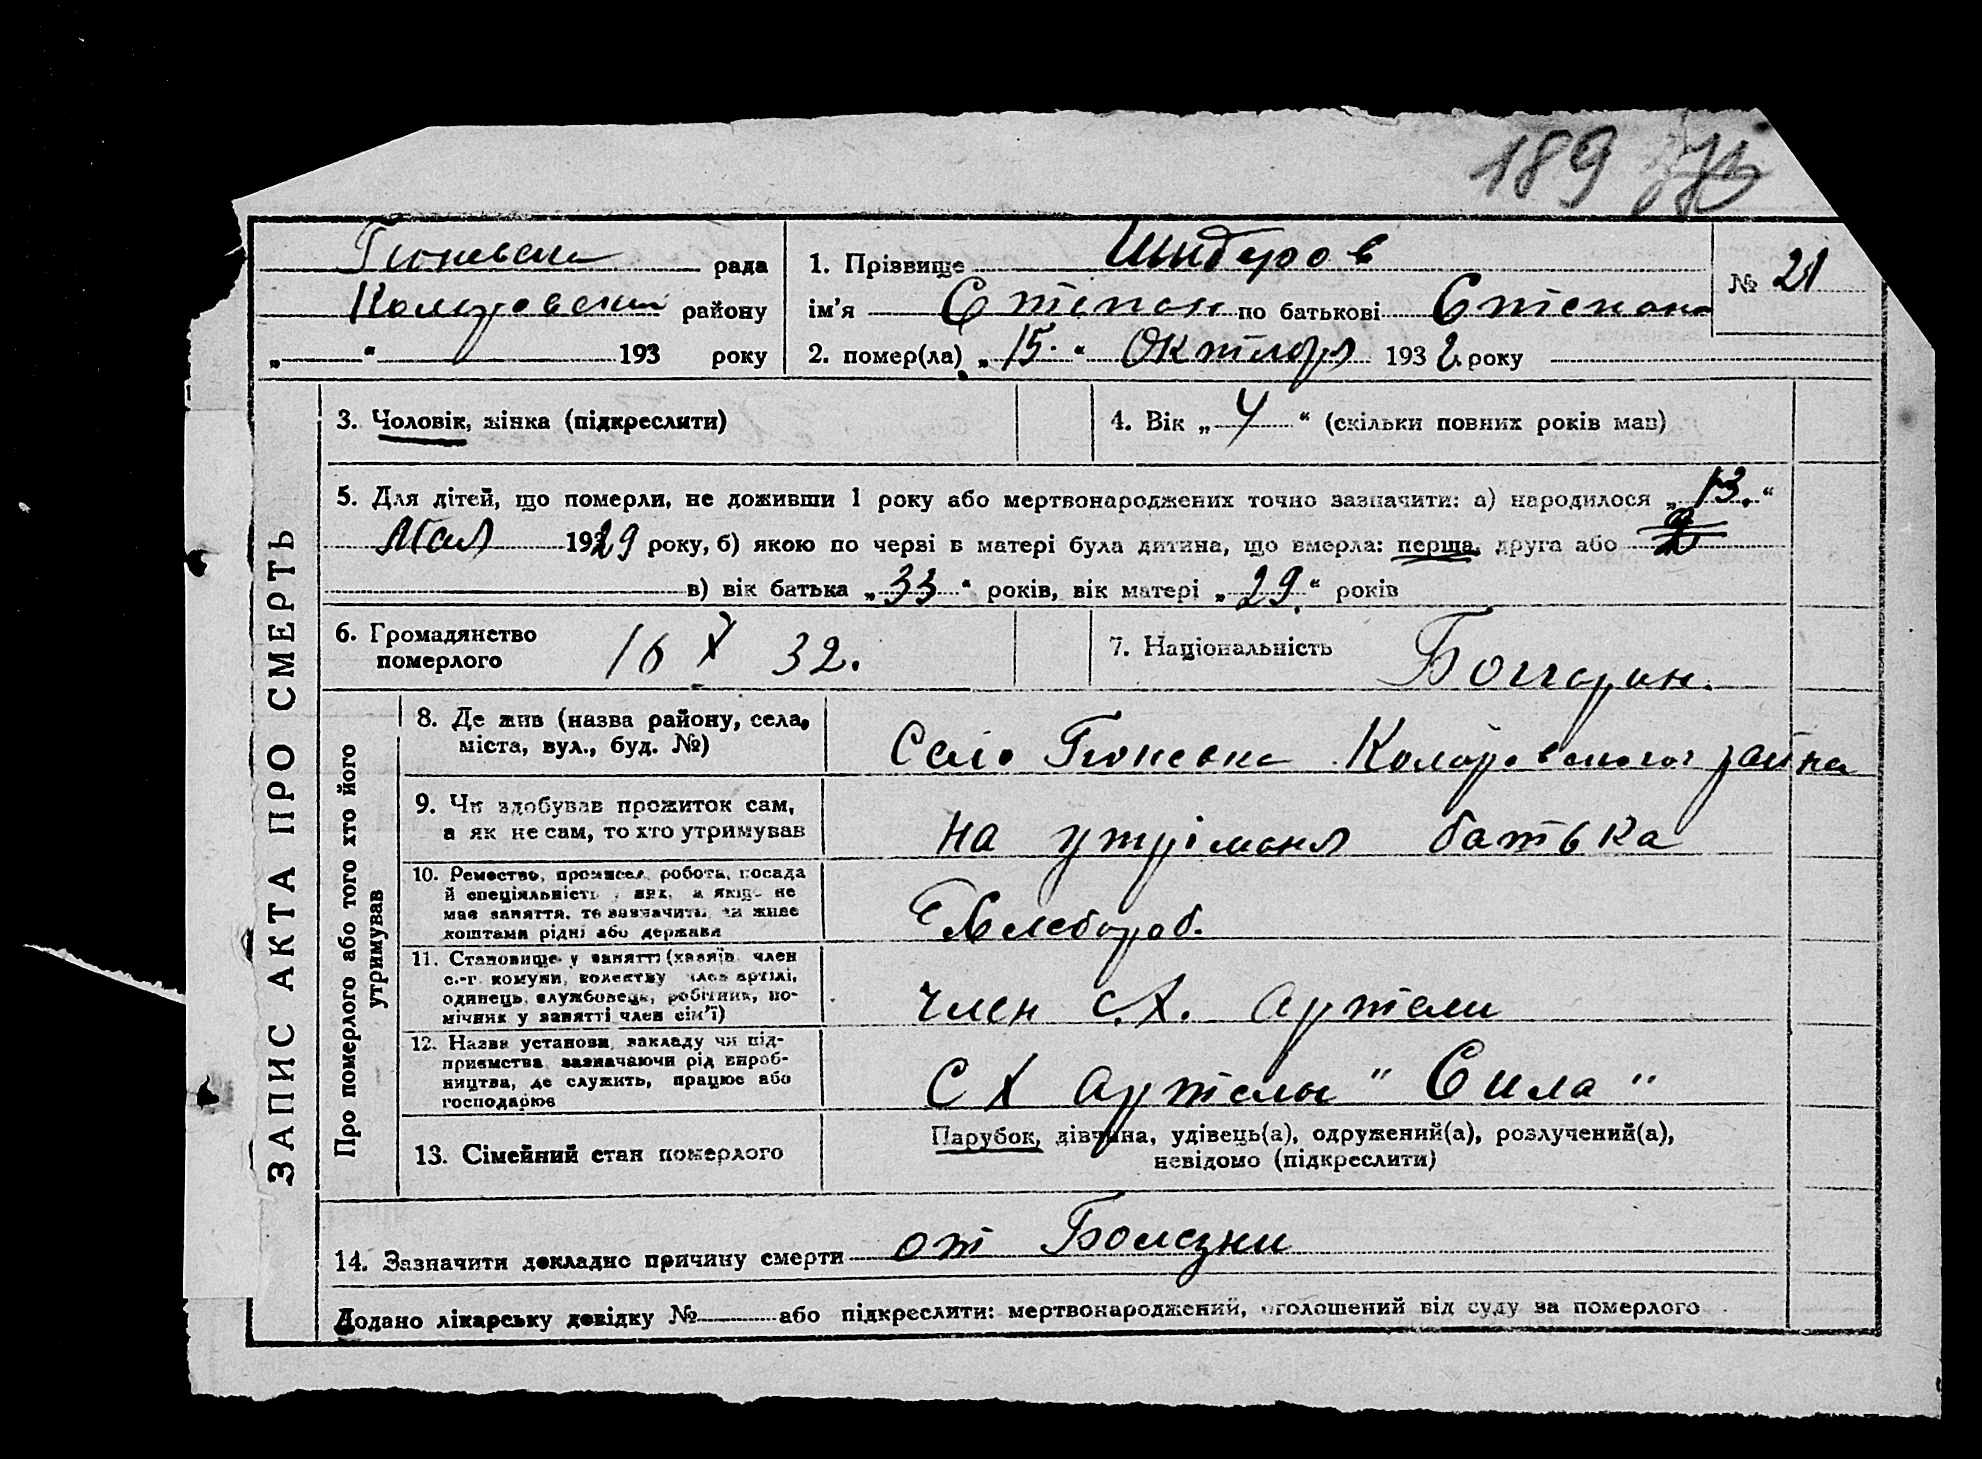 189
Гюневска рада
Коларовский району
„ “ 193 року
1. Прізвище Шидеров
ім'я Степан по батькові Степанов
№ 21
2. помер(ла) „15.“ Октября 1932 року
ЗАПИС АКТА ПРО СМЕРТЬ
3. Чоловік, жінка (підкреслити)
4. Вік „4“ (скільки повних років мав)
5. Для дітей, що померли, не доживши 1 року або мертвонароджених точно зазначити: а) народилося „13.“
Мая 1929 року, б) якою по черзі в матері була дитина, що вмерла: перша, друга або
в) вік батька „33“ років, вік матері „29.“ років
6. Громадянство
померлого
16 X 32.
7. Національність Болгарин.
Про померлого або того хто його
утримував
8. Де жив (назва району, села,
міста, вул., буд. №)
Село Гюневка Коларовского района
9. Чи здобував прожиток сам,
а як не сам, то хто утримував
на утріманя батька
10. Ремество, промисел, робота, посада
й спеціяльність у них, а якщо не
має заняття, то зазначити, чи живе
коштами рідні або держави
Хлебороб.
11. Становище у занятті (хазяїн, член
с.-г. комуни, колективу член артілі,
одинець, службовець, робітник, по-
мічник у занятті член сім'ї)
Член С.Х. артели
12. Назва установи, закладу чи під-
приємства, зазначаючи рід вироб-
ництва, де служить, працює або
господарює
С Х артелы "Сила"
13. Сімейний стан померлого
Парубок, дівчина, удівець(а), одружений(а), розлучений(а),
невідомо (підкреслити)
14. Зазначити докладно причину смерти от Болезни
Додано лікарську довідку № або підкреслити: мертвонароджений, оголошений від суду за померлого